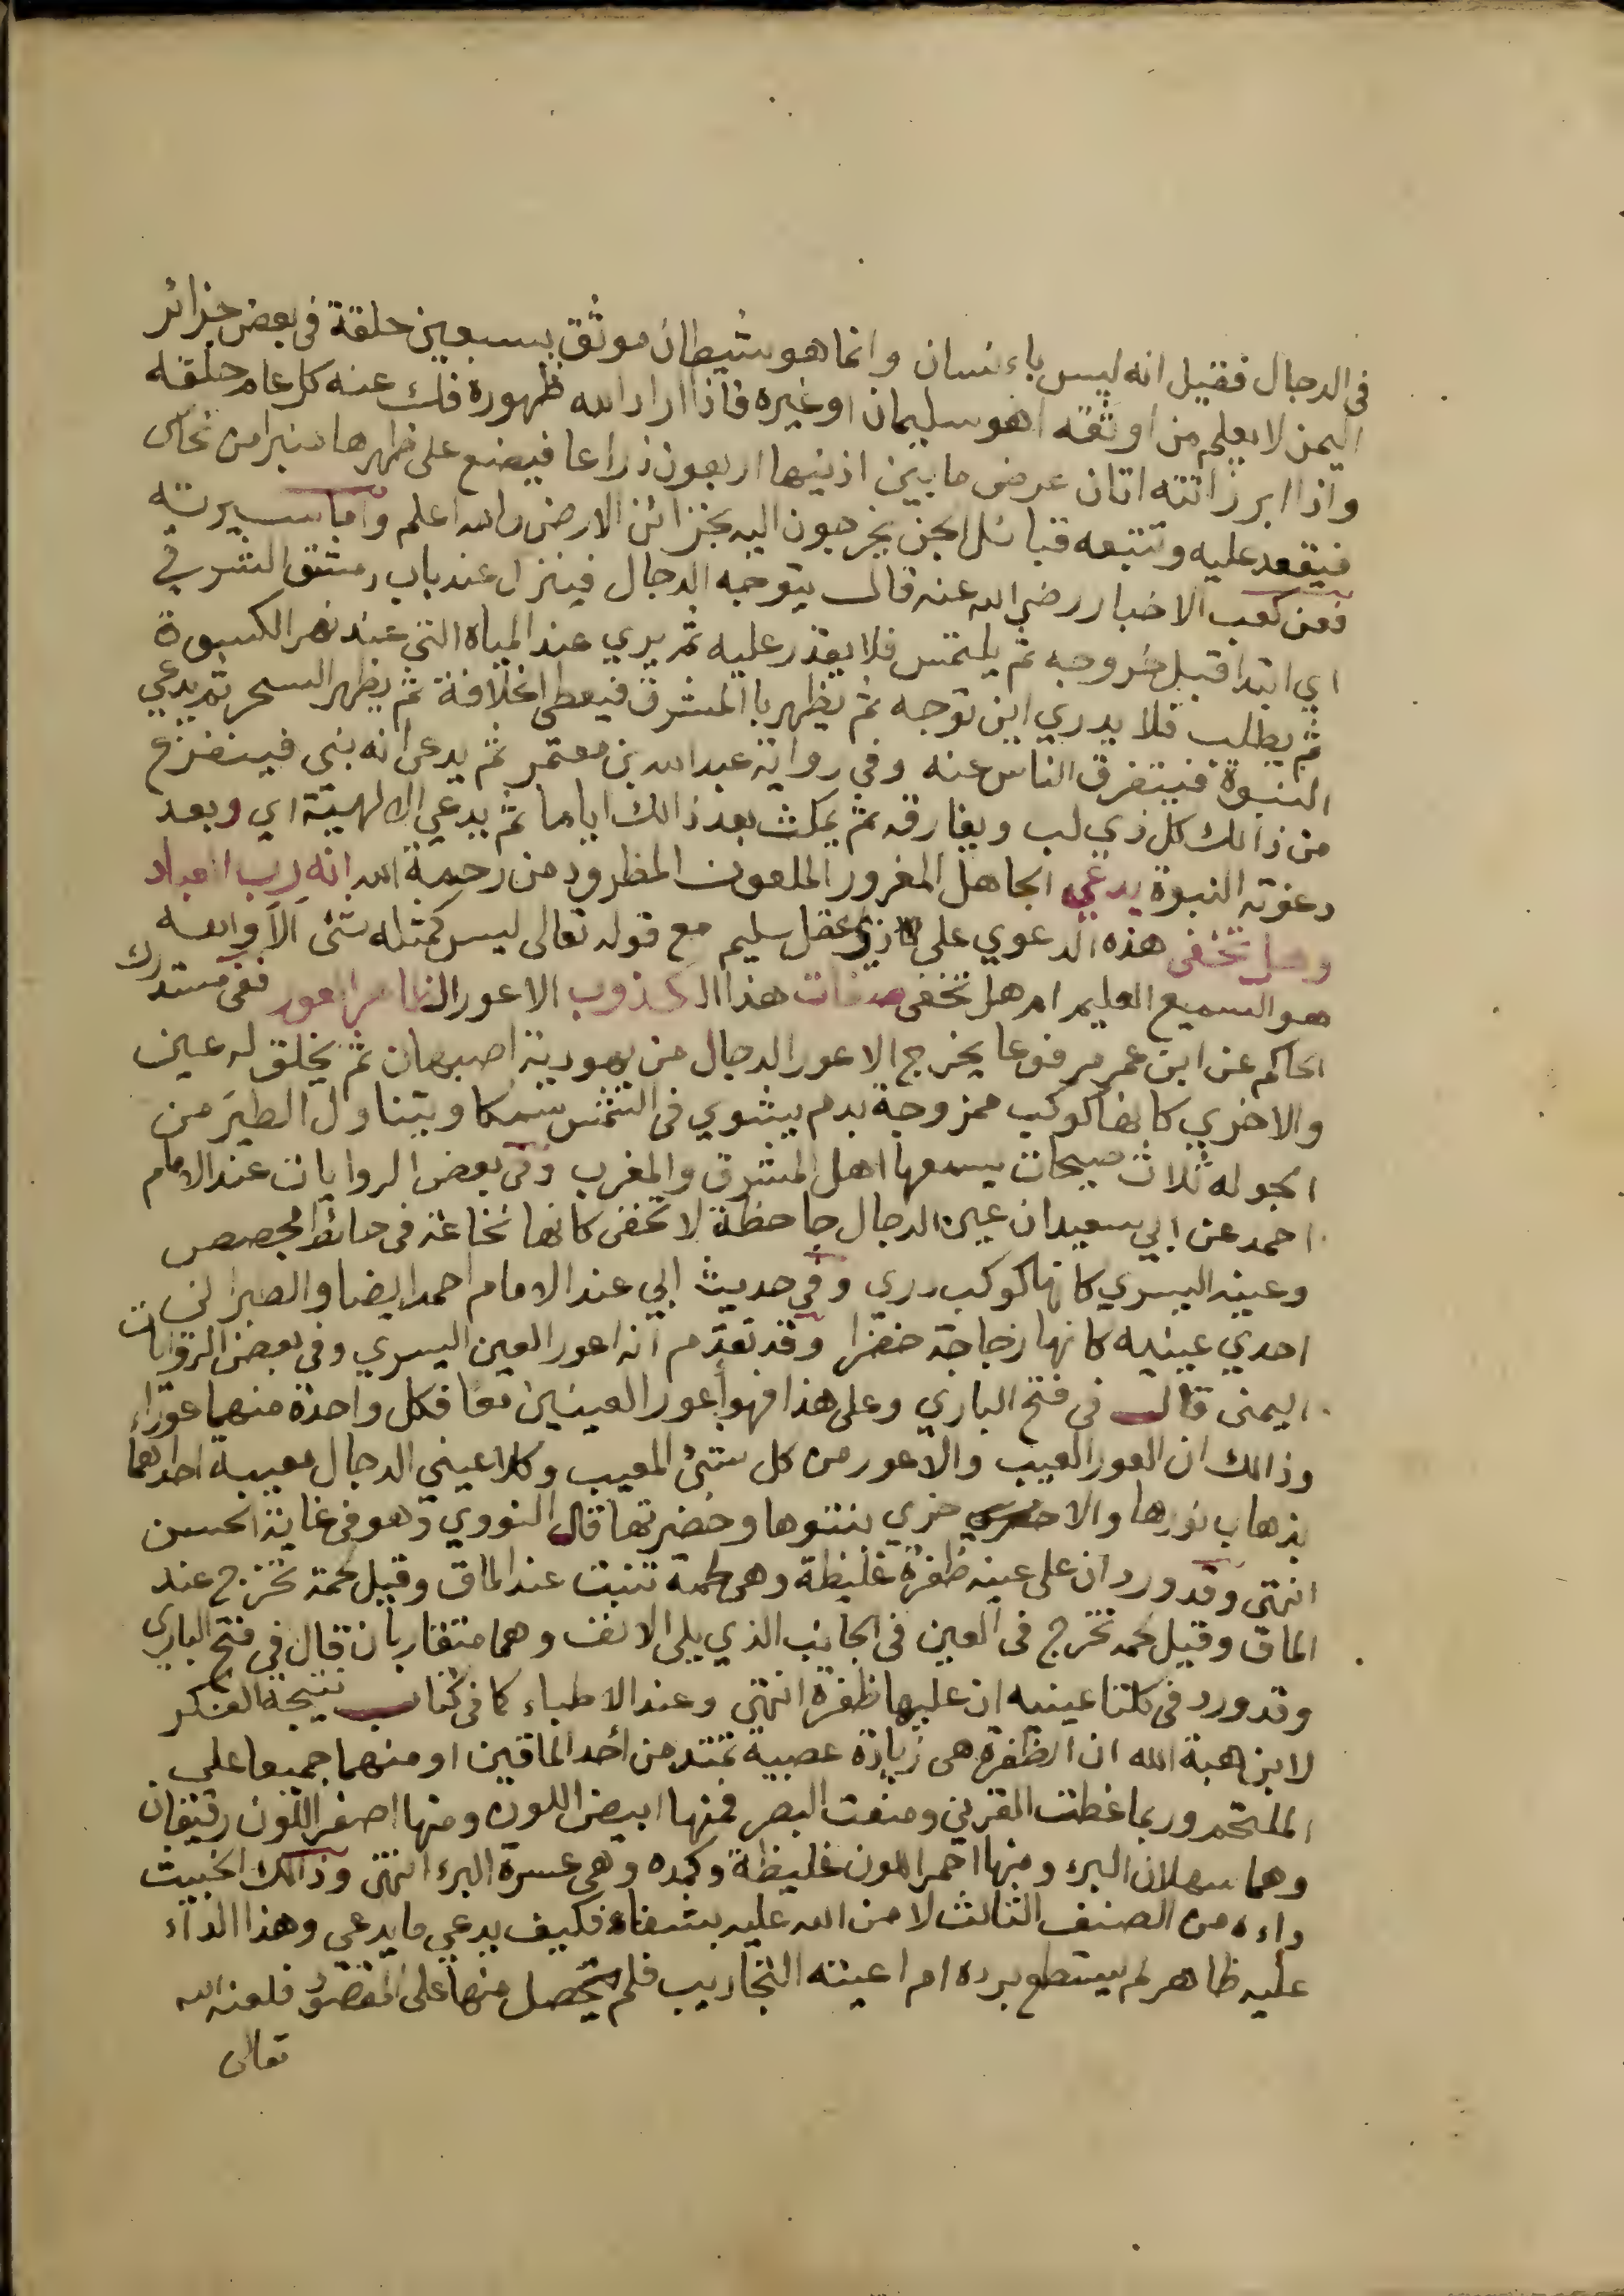 في الدجال فقيل انه ليس باءنسان وانما هو شيطان موثق بسبعين حلقة في بعض جزائر
اليمن لا يعلم من اوثقه اهو سليمان او غيره فاذا اراد الله ظهوره فك عنه كل عام حلقه
واذا ابرز اتته اتان عرض ما بين اذنيها اربعون ذراعا فيضع على ظهرها منبرا من نحاس
فيقعد عليه وتتبعه قبائل الجن يخرجون اليه بخزائن الارض والله اعلم واما سيرته
فعن كعب الاخبار رضي الله عنه قال يتوجه الدجال فينزل عند باب دمشق الشرقي
اي ابتدا قبل خروجه ثم يلتمس فلا يقدر عليه ثم يري عند المياه التي عند نهر الكسوة
ثم يطلب فلا يدري اين توجه ثم يظهر باالمشرق فيعطى الخلافة ثم يظهر السحر ثم يدعي
النبوة فيتفرق الناس عنه وفي رواية عبد الله بن معتمر ثم يدعى انه نبي فيتفزع
من ذالك كل ذي لب ويفارقه ثم يمكث بعد ذالك اياما ثم يدعي الالهية اي وبعد
دعوته النبوة يدعي الجاهل المغرور الملعون المطرود من رحمة الله انه رب العباد
وهل تخفى هذه الدعوي على ذي عقل سليم مع قوله تعالى ليس كمثله شئ الا وانه
هو السميع العليم ام هل تخفى صفات هذا الكذوب الاعور الظاهر العور ففي مستدرك
الحاكم عن ابن عمر مرفوعا يخرج الاعور الدجال من يهودية اصبهان ثم يخلق له عين
والاخري كانها كوكب ممزوجة بدم يشوي في الشمس سمكا ويتناول الطير من
الجو له ثلاث صيحات يسمعها اهل المشرق والمغرب وفي بعض الروايات عند الامام
احمد عن ابي سعيد ان عين الدجال جاحظة لا تخفى كانها نخاعة في حائط مجصص
وعينه اليسري كانها كوكب دري وفي حديث ابي عند الامام احمد ايضا والطبراني
احدي عينيه كانها زجاجة خضرا وقد تقدم انه اعور العين اليسري وفي بعض الروايات
اليمنى قال في فتح الباري وعلى هذا فهو أعور العينين معا فكل واحدة منهما عوراء
وذالك ان العور العيب والاعور من كل شئ المعيب وكلا عيني الدجال معيبة احداهما
بذهاب نورها والاخري بنتوها وخضرتها قال النووي وهو في غاية الحسن
انتهى وقد ورد ان على عينه ظفرة غليظة وهي لحمة تنبت عند الماق وقيل لحمة تخرج عند
الماق وقيل لحمه تخرج في العين في الجانب الذي يلي الانف وهما متقاربان قال في فتح الباري
وقد ورد في كلتا عينيه ان عليها ظفرة انتهى وعند الاطباء كما في كتاب نتيجة الفكر
لابن هبة الله ان الظفرة هي زيادة عصبية تمتد من أحد الماقين او منهما جميعا على
الملتحم وربما غطت القرني ومنعت البصر فمنها ابيض اللون ومنها اصفر اللون رقيقان
وهما سهلان البرء ومنها احمر اللون غليظة وكمده وهي عسرة البرء انتهى وذالك الخبيث
داءه من الصنف الثالث لا من الله عليه بشفاء فكيف يدعي ما يدعي وهذا الداء
عليه ظاهر لم يستطع برده ام اعيته التجاريب فلم يحصل منها على المقصود فلعنه الله
تعالى